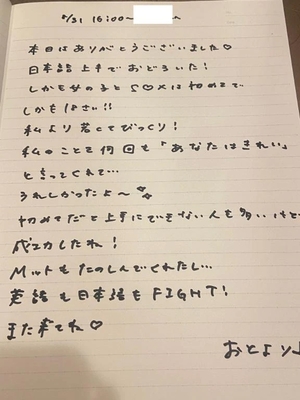 16:00〜
本日はありがとうございました♡
日本語上手でおどろいた!
しかも女の子とS♡Xは初めてで
しかも18さい!!
私より若くてびっくり!
私のこと何回も「あなたはきれい」
と言ってくれて...
うれしかったよ〜
初めてだと上手にできない人も多いけど
成功したね!
Mットもたのしんでくれたし...
英語も日本語もFIGHT!
また来てね♡
おとより